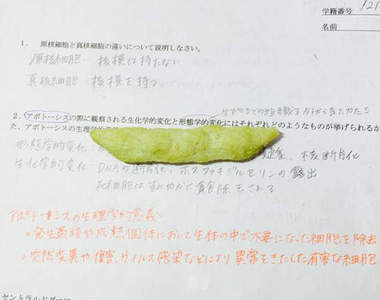 学籍番号 121
名前
1. 原核細胞と真核細胞の違いについて説明しなさい。
原核細胞… 核膜は持たない
真核細胞… 核膜を持つ
2. アポトーシスの際に観察される生化学的変化と形態学的変化にはそれぞれどのようなものが挙げられるか
た、アポトーシスの生理学的
形態学的変化 核断片化
生化学的変化… DNAの断片化、ホスファチジルセリンの露出
死細胞はすみやかに貪食除去される
アポトーシスの生理学的意義
・発生過程や成熟個体において生体の中で不要になった細胞を除去
・突然変異や傷害、ウィルス感染などにより異常をきたした有害な細胞
セントラルドグマ